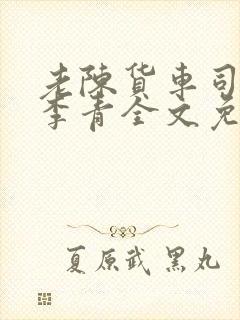 老陳货車司
李青全文免
夏原武 黑丸